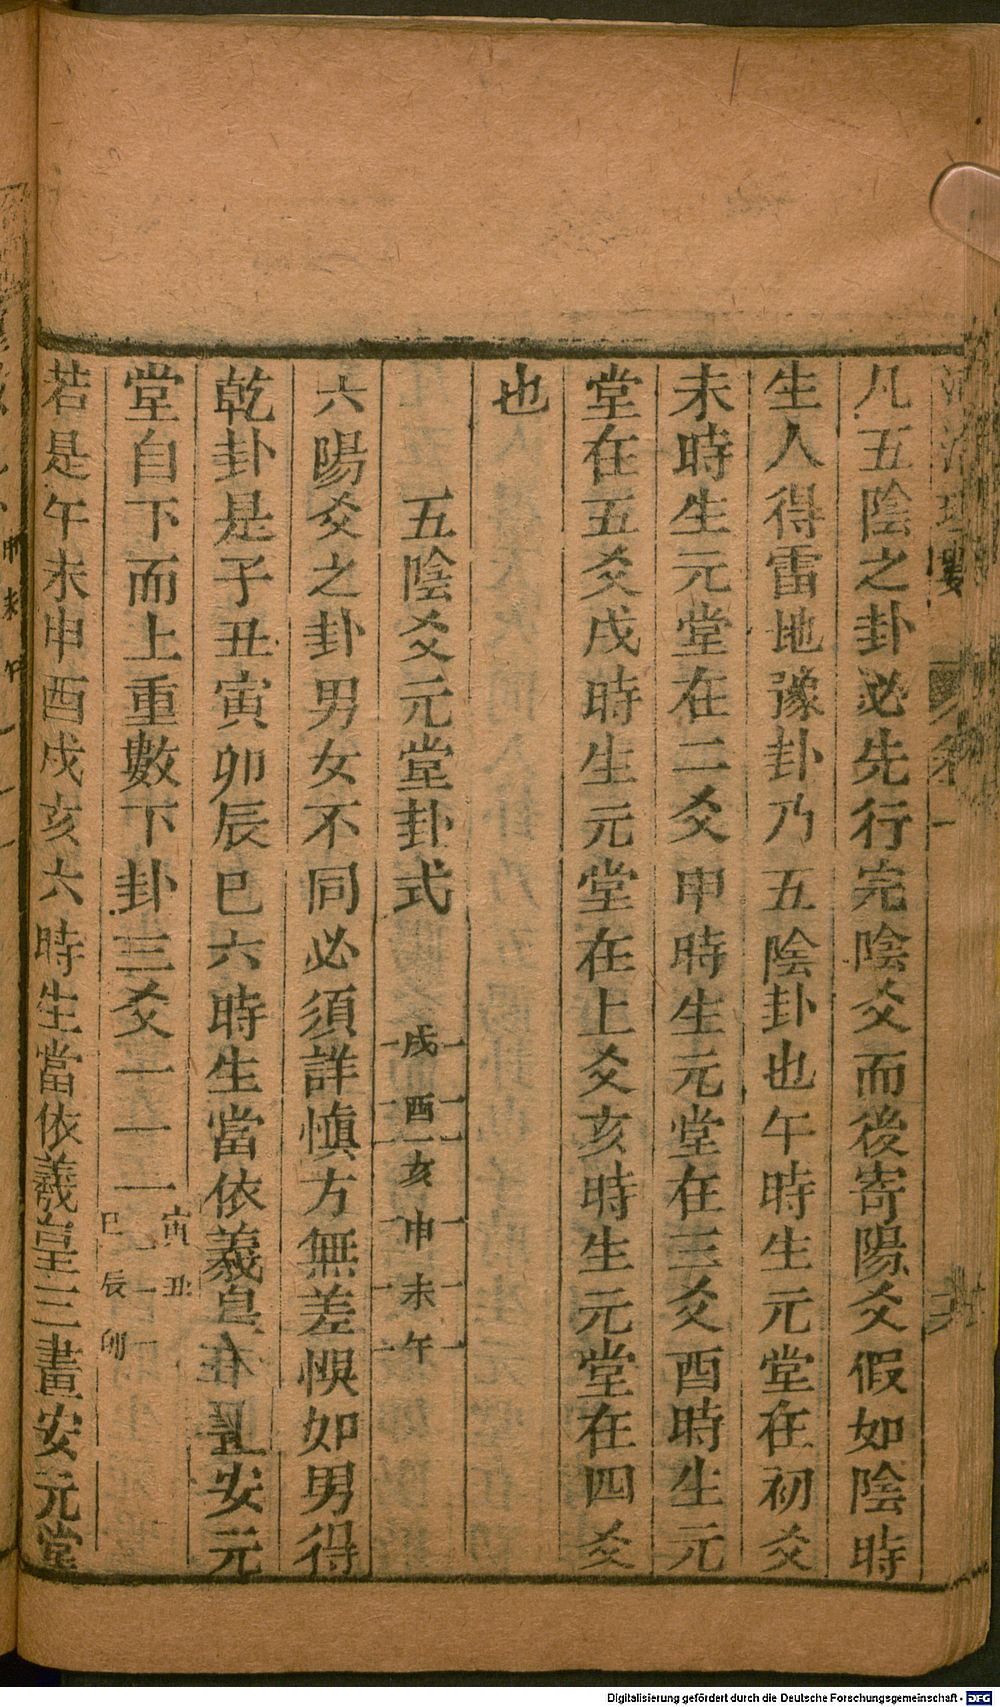 凡五陰之卦必先行完陰爻而後寄陽爻假如陰時
生人得雷地豫卦乃五陰卦也午時生元堂在初爻
未時生元堂在二爻申時生元堂在三爻酉時生元
堂在五爻戌時生元堂在上爻亥時生元堂在四爻
也
五陰爻元堂卦式
戌 酉 亥 申 未 午
六陽爻之卦男女不同必須詳慎方無差悞如男得
乾卦是子丑寅卯辰巳六時生當依羲皇 安元
堂自下而上重數下卦三爻
寅 丑
巳 辰 卯
若是午未申酉戌亥六時生當依羲皇三畫安元堂
Digitalisierung gefördert durch die Deutsche Forschungsgemeinschaft - DFG